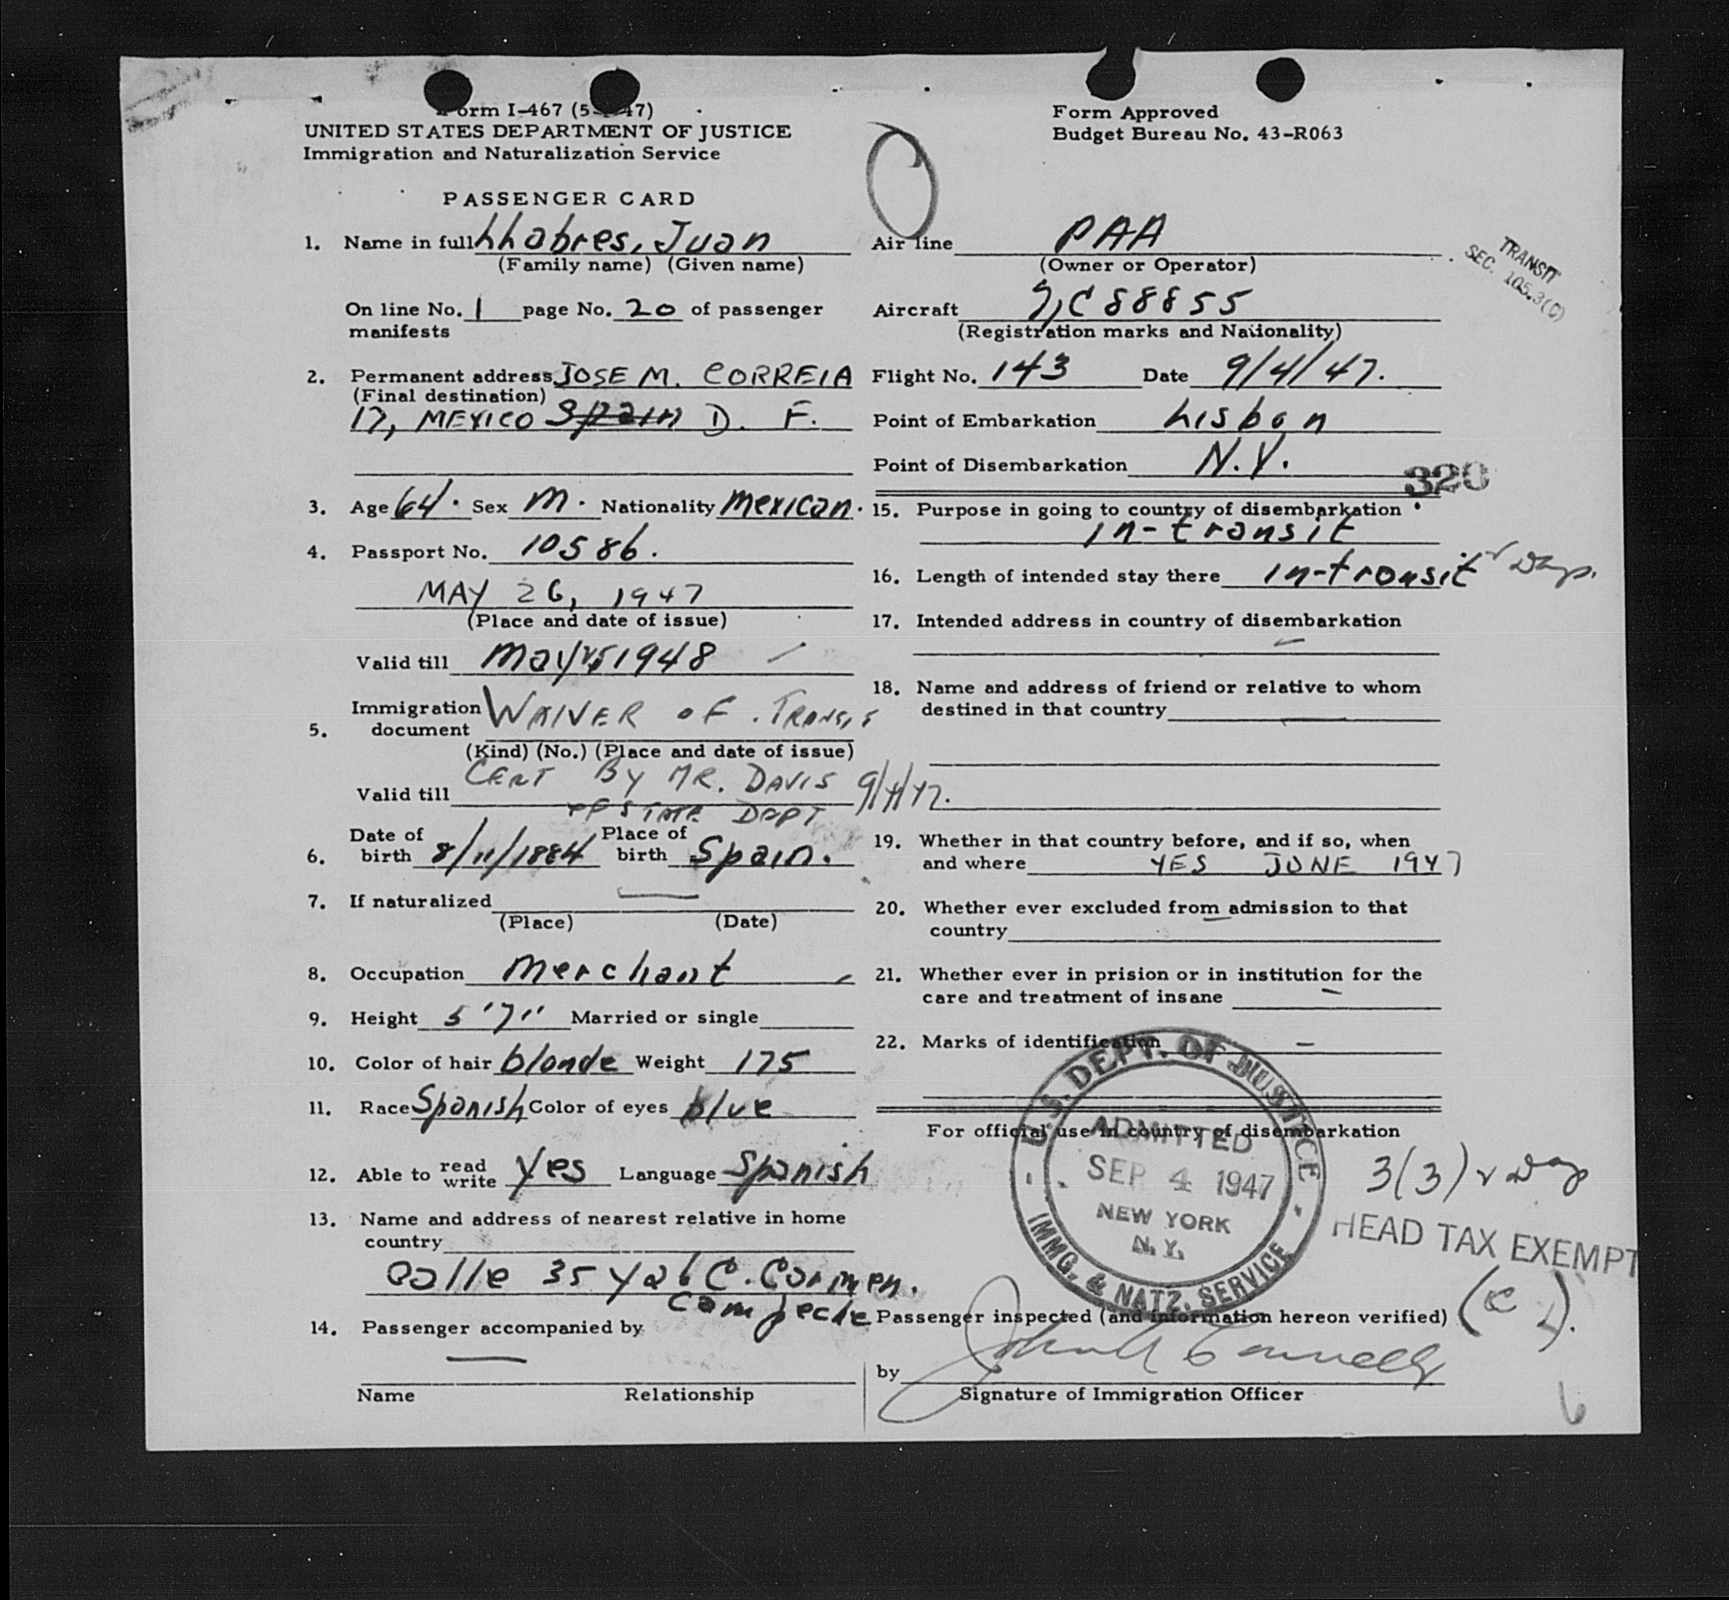 Form I-467 (5 47)
UNITED STATES DEPARTMENT OF JUSTICE
Immigration and Naturalization Service
Form Approved
Budget Bureau No. 43-R063
PASSENGER CARD
1. Name in full Llabres, Juan
(Family name) (Given name)
On line No. 1 page No. 20 of passenger
manifests
2. Permanent address JOSE M. CORREIA
(Final destination)
17, MEXICO Spain D. F.
3. Age 64. Sex M. Nationality Mexican.
4. Passport No. 10586.
MAY 26, 1947
(Place and date of issue)
Valid till May 25 1948
5. Immigration document WAIVER OF TRANSIT
(Kind) (No.) (Place and date of issue)
CERT BY MR. DAVIS 9/4/47.
Valid till
OF STATE DEPT
6. Date of birth 8/11/1884 Place of birth Spain.
7. If naturalized
(Place) (Date)
8. Occupation Merchant
9. Height 5'7" Married or single
10. Color of hair blonde Weight 175
11. Race Spanish Color of eyes blue
12. Able to read write Yes Language Spanish
13. Name and address of nearest relative in home
country
Calle 35 y 26 C. Carmen.
Campeche
14. Passenger accompanied by
Name Relationship
Air line PAA
(Owner or Operator)
Aircraft NC 88855
(Registration marks and Nationality)
TRANSIT
SEC. 105.3(C)
Flight No. 143 Date 9/4/47.
Point of Embarkation Lisbon
Point of Disembarkation N.Y.
320
15. Purpose in going to country of disembarkation
in-transit
16. Length of intended stay there in-transit
17. Intended address in country of disembarkation
18. Name and address of friend or relative to whom
destined in that country
19. Whether in that country before, and if so, when
and where YES JUNE 1947
20. Whether ever excluded from admission to that
country
21. Whether ever in prision or in institution for the
care and treatment of insane
22. Marks of identification
For official use in country of disembarkation
U.S. DEPT. OF JUSTICE
ADMITTED
SEP 4 1947
NEW YORK
N.Y.
IMMG. & NATZ. SERVICE
3(3)
HEAD TAX EXEMPT
Passenger inspected (and information hereon verified)
by
Signature of Immigration Officer